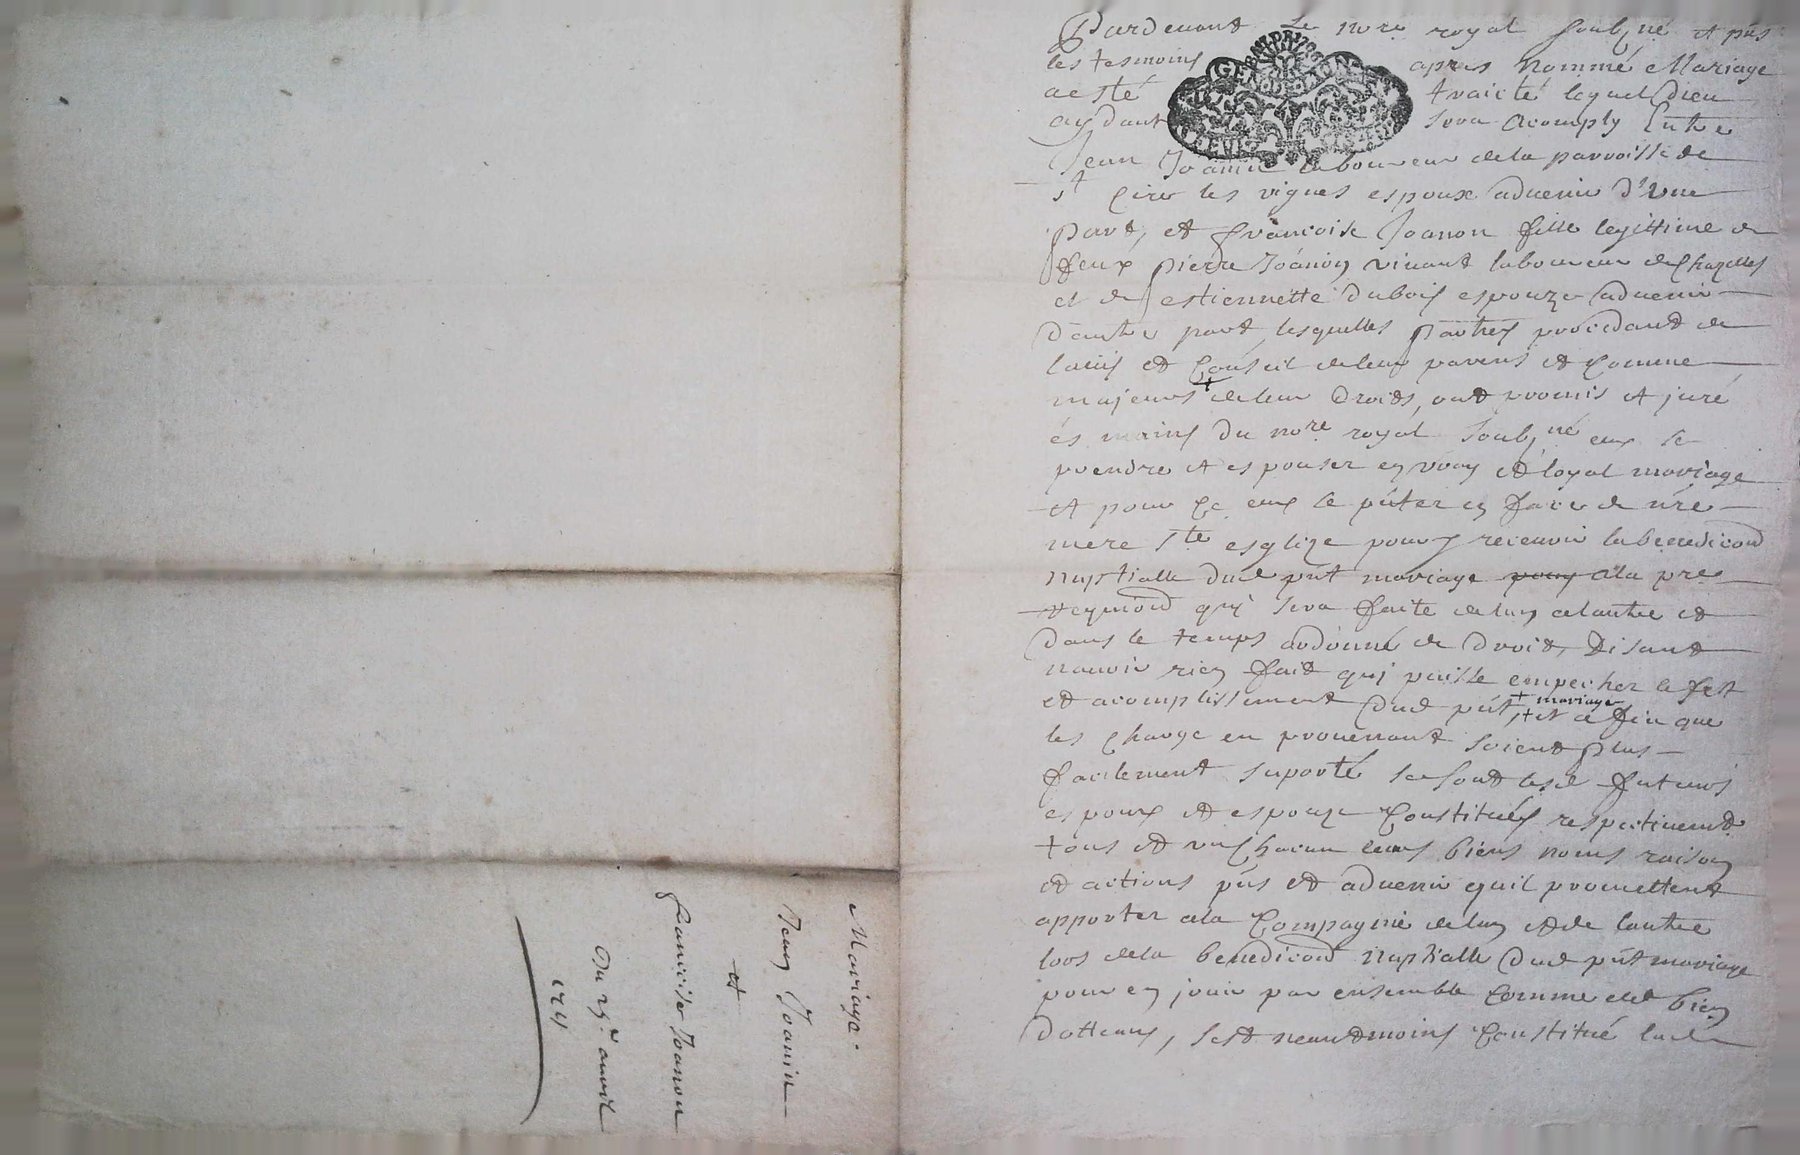 Pardeuant Le nore royal soubzné et pñs
les tesmoins apres nommé Mariage
a esté traicté lequel Dieu
aydant sera acomply Entre
Jean Joanin laboureur de la parroisse de
st Cire les vignes espoux aduenir d'une
part, et francoise Joanon fille legittime de
feux pierre Joanon viuant laboureur de Chazelles
et de estiennette dubois espouze aduenir
d'autre part, lesquelles parties procedant de
lauis et Conseil de leur parens et Comme
majeurs de leur droits, ont promis et juré
és mains du nore royal soubzné eux se
prendre et espouser en vray et loyal mariage
et pour Ce eux se pñter en face de nre
mere ste esglize pour y receuoir la benediction
nuptialle dud pñt mariage a la pre
requiō quy sera faite de lun a lautre et
dans le temps ordonné de droit, Disant
nauoir rien fait quy puisse empecher le
et acomplissement dud pñt + mariage
+ et a fin que
les charge en prouenant soient plus
facilement suporté se sont lesd futurs
espoux et espouze Constitués respectiuemt
tous et un Chacun leurs biens noms raisons
et actions pñs et aduenir quil promettent
apporter a la Compagnie de lun et de lautre
lors de la benediction nuptialle dud pñt mariage
pour en jouir par ensemble Comme bien
dotteaux, sest neantmoins Constitué lad
Mariage
Jean Joanin
et
francoise Joanon
Du 25e auril
1711